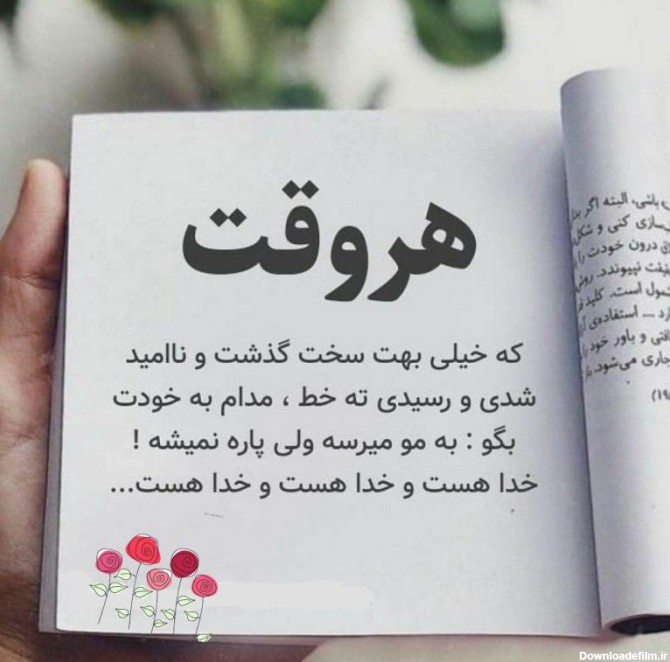 هر وقت
که خیلی بهت سخت گذشت و ناامید
شدی و رسیدی ته خط ، مدام به خودت
بگو : به مو میرسه ولی پاره نمیشه !
خدا هست و خدا هست و خدا هست...
باشی، البته اگر
سازی کنی و
درون خودت را
نپیوندد.
است. کلید
استفاده‌ی
و باور خود
جاری می‌شود.
Downloadefilm.ir